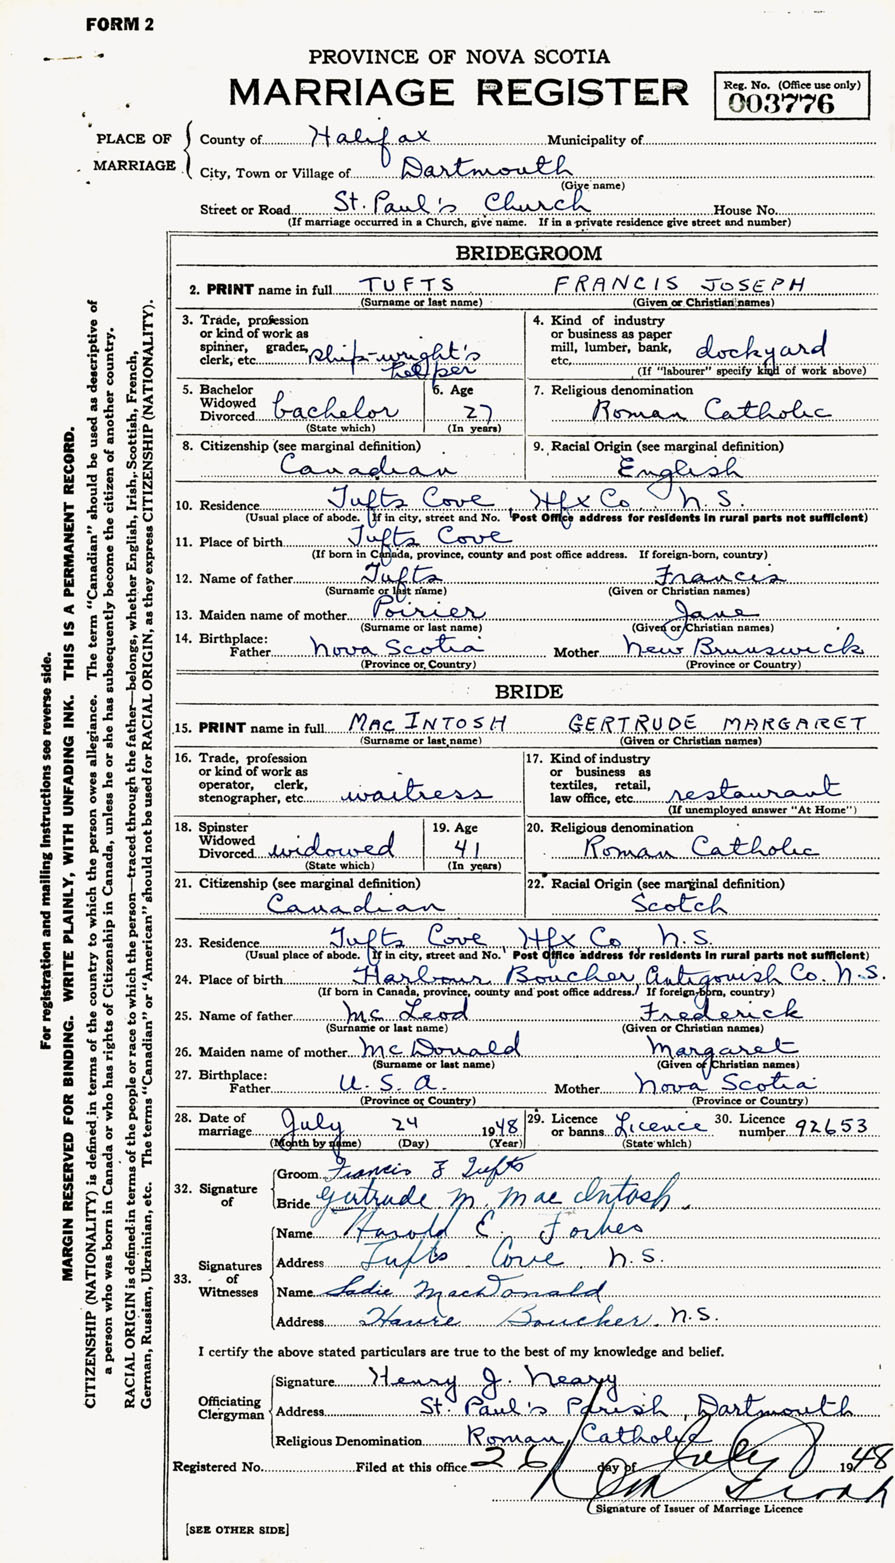 FORM 2
PROVINCE OF NOVA SCOTIA
MARRIAGE REGISTER
Reg. No. (Office use only)
003776
PLACE OF MARRIAGE
County of Halifax Municipality of
City, Town or Village of Dartmouth
(Give name)
Street or Road St. Paul's Church House No.
(If marriage occurred in a Church, give name. If in a private residence give street and number)
BRIDEGROOM
2. PRINT name in full TUFTS FRANCIS JOSEPH
(Surname or last name) (Given or Christian names)
3. Trade, profession
or kind of work as
spinner, grader,
clerk, etc. ship-wright's
helper
4. Kind of industry
or business as paper
mill, lumber, bank,
etc. dockyard
(If "labourer" specify kind of work above)
5. Bachelor
Widowed
Divorced bachelor
(State which)
6. Age
27
(In years)
7. Religious denomination
Roman Catholic
8. Citizenship (see marginal definition)
Canadian
9. Racial Origin (see marginal definition)
English
10. Residence Tufts Cove Hfx Co N.S.
(Usual place of abode. If in city, street and No. Post Office address for residents in rural parts not sufficient)
11. Place of birth Tufts Cove
(If born in Canada, province, county and post office address. If foreign-born, country)
12. Name of father Tufts Francis
(Surname or last name) (Given or Christian names)
13. Maiden name of mother Poirier Jane
(Surname or last name) (Given or Christian names)
14. Birthplace:
Father Nova Scotia Mother New Brunswick
(Province or Country) (Province or Country)
BRIDE
15. PRINT name in full MACINTOSH GERTRUDE MARGARET
(Surname or last name) (Given or Christian names)
16. Trade, profession
or kind of work as
operator, clerk,
stenographer, etc. waitress
17. Kind of industry
or business as
textiles, retail,
law office, etc. restaurant
(If unemployed answer "At Home")
18. Spinster
Widowed
Divorced widowed
(State which)
19. Age
41
(In years)
20. Religious denomination
Roman Catholic
21. Citizenship (see marginal definition)
Canadian
22. Racial Origin (see marginal definition)
Scotch
23. Residence Tufts Cove Hfx Co N.S.
(Usual place of abode. If in city, street and No. Post Office address for residents in rural parts not sufficient)
24. Place of birth Harbour Boucher Antigonish Co. N.S.
(If born in Canada, province, county and post office address. If foreign-born, country)
25. Name of father McLeod Frederick
(Surname or last name) (Given or Christian names)
26. Maiden name of mother McDonald Margaret
(Surname or last name) (Given or Christian names)
27. Birthplace:
Father U.S.A. Mother Nova Scotia
(Province or Country) (Province or Country)
28. Date of
marriage July 24 1948
(Month by name) (Day) (Year)
29. Licence
or banns Licence
(State which)
30. Licence
number 92653
32. Signature of
Groom Francis J Tufts
Bride Gertrude M. MacIntosh.
33. Signatures of Witnesses
Name Harold E. Forbes
Address Tufts Cove N.S.
Name Sadie MacDonald
Address Havre Boucher. N.S.
I certify the above stated particulars are true to the best of my knowledge and belief.
Officiating Clergyman
Signature Henry J. Neary
Address St. Paul's Parish, Dartmouth
Religious Denomination Roman Catholic
Registered No. Filed at this office 26 day of July 1948
Signature of Issuer of Marriage Licence
[SEE OTHER SIDE]
For registration and mailing instructions see reverse side.
MARGIN RESERVED FOR BINDING. WRITE PLAINLY, WITH UNFADING INK. THIS IS A PERMANENT RECORD.
CITIZENSHIP (NATIONALITY) is defined in terms of the country to which the person owes allegiance. The term "Canadian" should be used as descriptive of
a person who was born in Canada or who has rights of Citizenship in Canada, unless he or she has subsequently become the citizen of another country.
RACIAL ORIGIN is defined in terms of the people or race to which the person—traced through the father—belongs, whether English, Irish, Scottish, French,
German, Russian, Ukrainian, etc. The terms "Canadian" or "American" should not be used for RACIAL ORIGIN, as they express CITIZENSHIP (NATIONALITY).